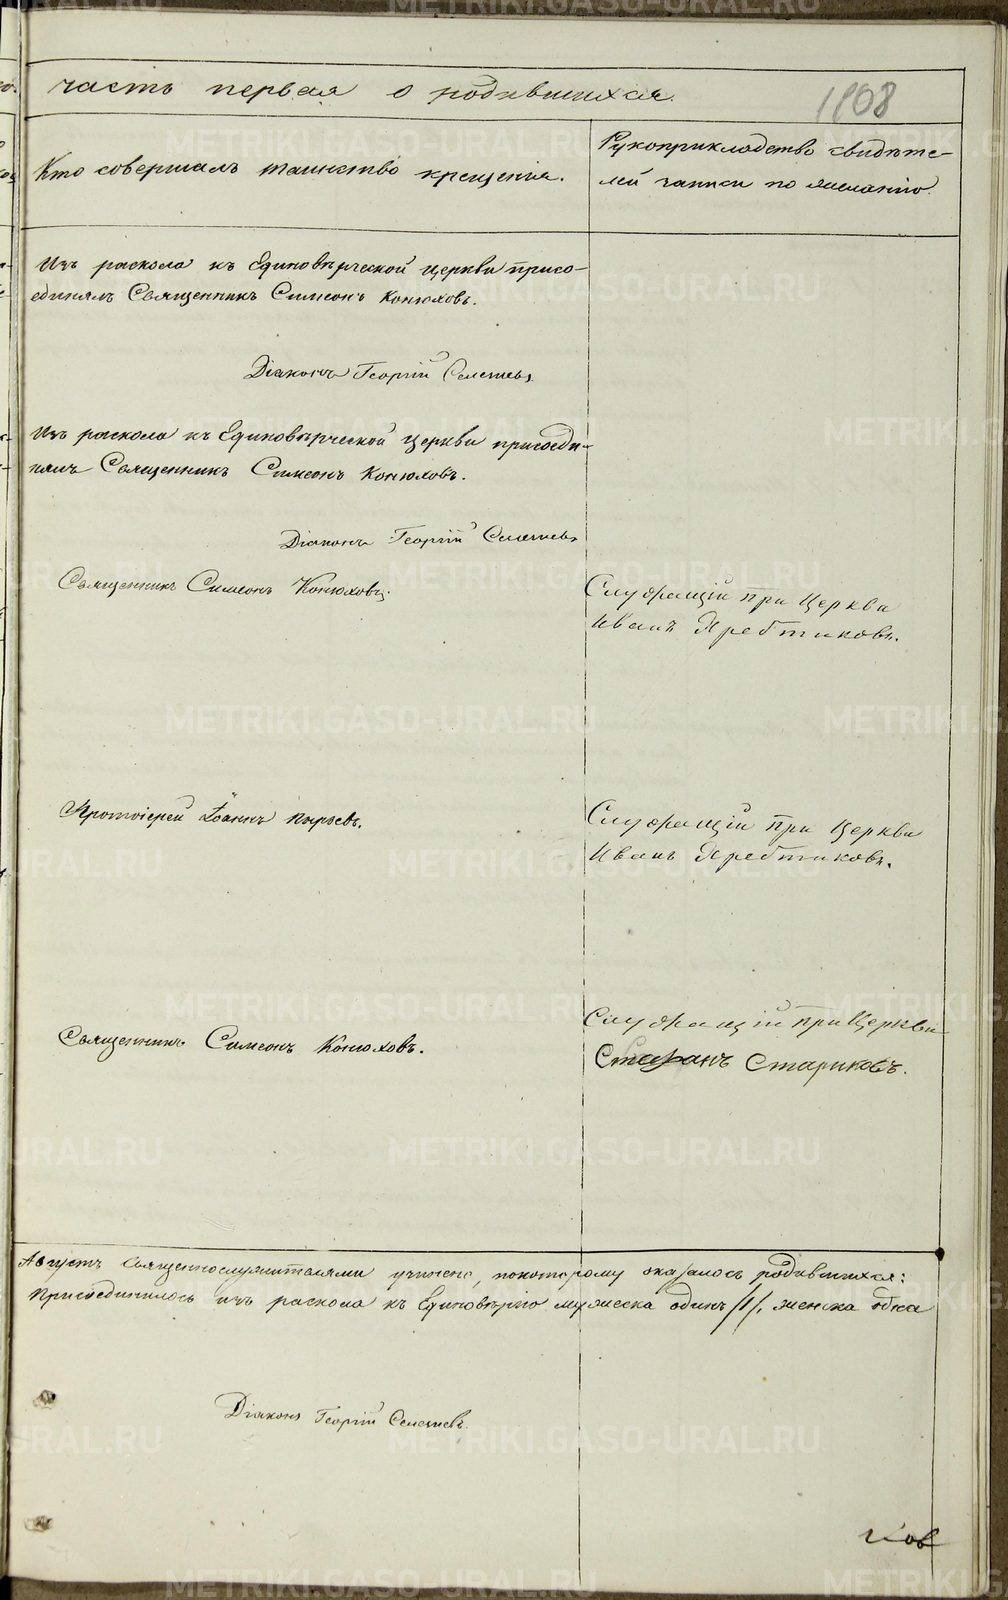 часть первая о родившихся.
1108
Кто совершалъ таинство крещенія.
Рукоприкладство свидѣте-
лей записи по желанію.
Изъ раскола къ Единовѣрческой церкви присо-
единялъ Священникъ Симеонъ Конюховъ.
Діаконъ Георгій
Изъ раскола къ Единовѣрческой церкви присоеди-
нялъ Священникъ Симеонъ Конюховъ.
Діаконъ Георгій
Священникъ Симеонъ Конюховъ.
Служащій при Церкви
Иванъ Яребтиковъ.
Протоіерей Іоаннъ Пырьевъ.
Служащій при Церкви
Иванъ Яребтиковъ.
Священникъ Симеонъ Конюховъ.
Служащій при Церкви
Стефанъ Стариковъ.
Августъ священнослужителями учинено, покоторому оказалось родившихся:
Присоединилось изъ раскола къ Единовѣрію мужеска одинъ /1/, женска одна
Діаконъ Георгій
METRIKI.GASO-URAL.RU